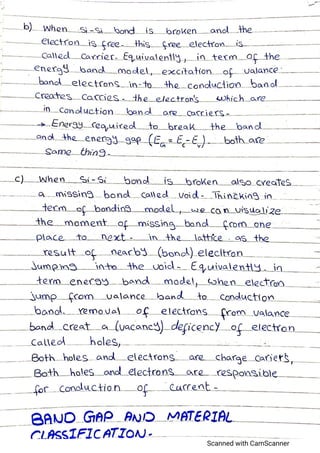 b) When Si-Si bond is broken and the
electron is free. this free electron is
called carrier. Equivalently, in term of the
energy band model, excitation of valance
band electrons in-to the conduction band
creates carries. the electron's which are
in conduction band are carriers.
→ Energy required to break the band
and the energy gap (EG = Ec - Ev). both are
Same thing.
c) When Si-Si bond is broken also creates
a missing bond called void. Thincking in
term of bonding model, we can visualize
the moment of missing band from one
place to next. in the lattice as the
result of nearby (bond) elecltron
Jumping into the void. Equivalently. in
term energy band model, when electron
jump from valance band to conduction
band. removal of electrons from valance
band creat a (vacancy) deficency of electron
called holes,
Both holes and electrons are charge cariers,
Both holes and electrons are responsible
for conduction of current.
BAND GAP AND MATERIAL
CLASSIFICATION.
Scanned with CamScanner